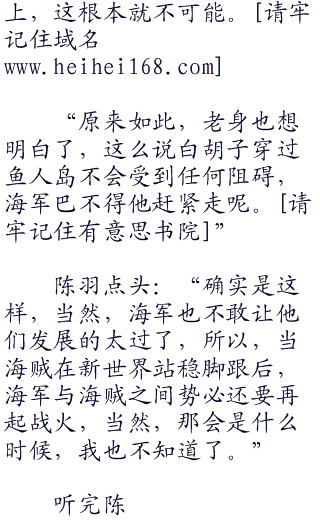 上，这根本就不可能。[请牢
记住域名
www.heihei168.com]
“原来如此，老身也想
明白了，这么说白胡子穿过
鱼人岛不会受到任何阻碍，
海军巴不得他赶紧走呢。[请
牢记住有意思书院]”
陈羽点头：“确实是这
样，当然，海军也不敢让他
们发展的太过了，所以，当
海贼在新世界站稳脚跟后，
海军与海贼之间势必还要再
起战火，当然，那会是什么
时候，我也不知道了。”
听完陈